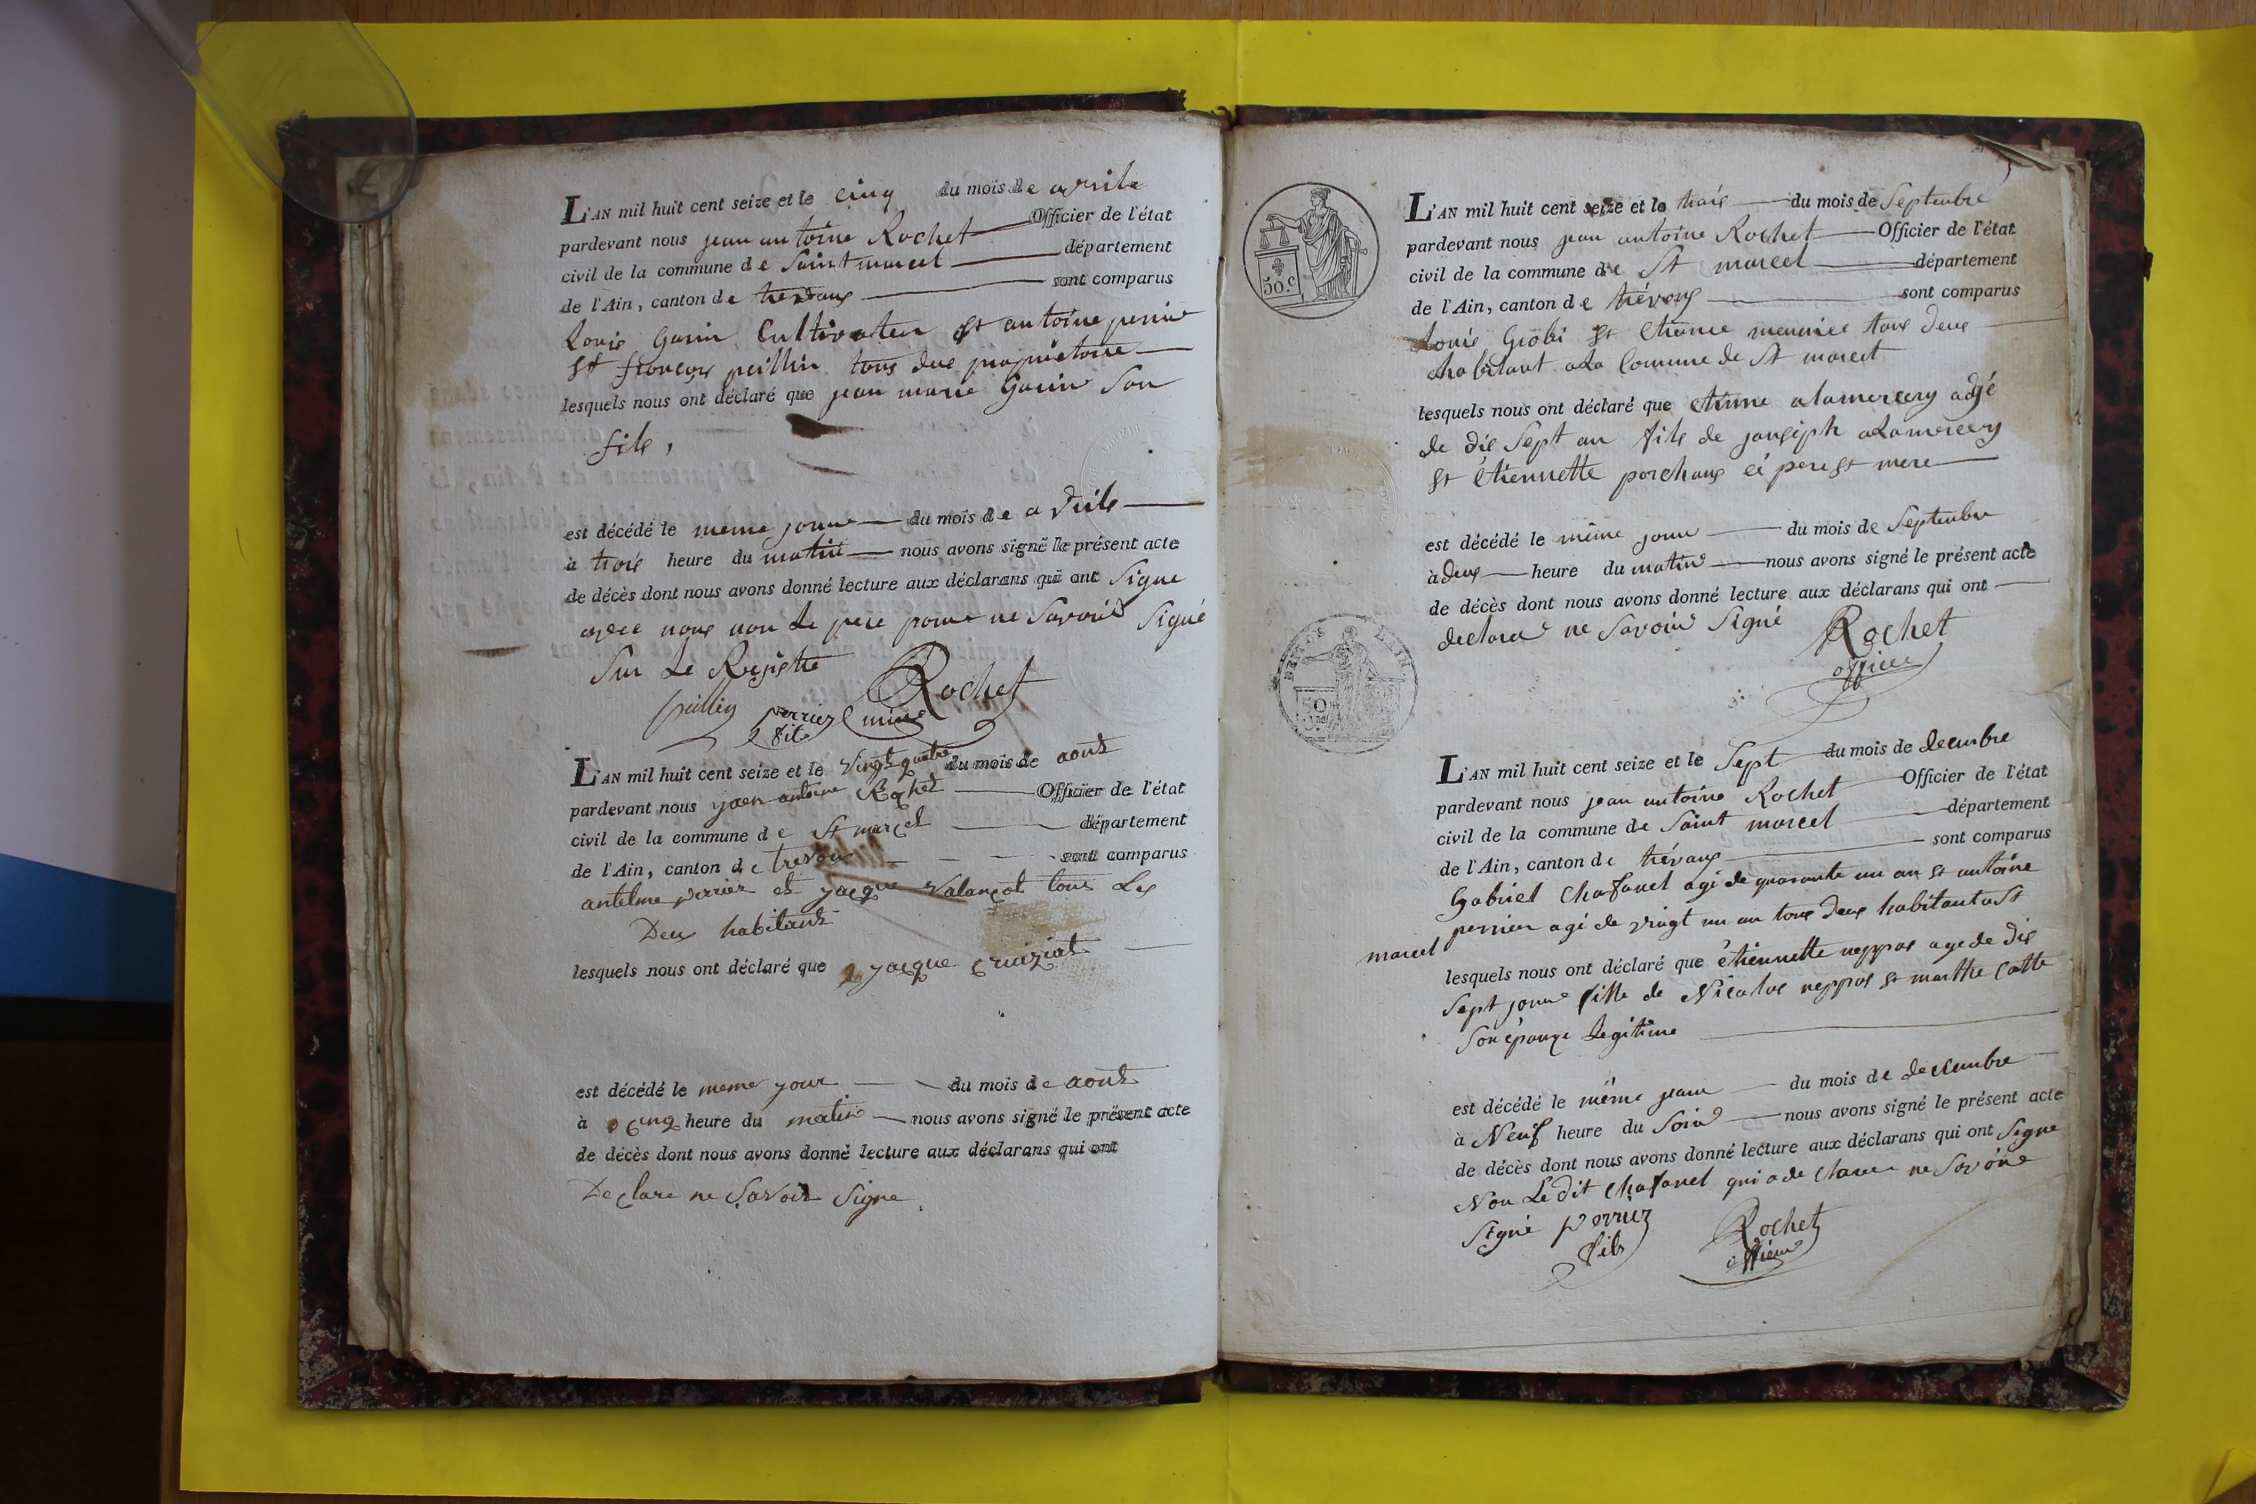 L'AN mil huit cent seize et le cinq du mois de avrile
pardevant nous jean antoine Rochet Officier de l'état
civil de la commune de Saint marcel département
de l'Ain, canton de trevoux sont comparus
Louis Garin Cultivateu et antoine perrie
et françois peillin tous deux propriétaire
lesquels nous ont déclaré que jean marie Garin Son
fils,
est décédé le meme jour du mois de avrile
à trois heure du matin nous avons signé le présent acte
de décès dont nous avons donné lecture aux déclarans qui ont Signe
avec nous non le pere pour ne Savoir Signé
Sur Le Registre
peillin perriez Rochet
fils mire
L'AN mil huit cent seize et le vingt quatre du mois de aout
pardevant nous jaen antoine Rochet Officier de l'état
civil de la commune de St marcel département
de l'Ain, canton de trevou sont comparus
antelme perrier et jacque valançot tous Les
Deux habitant
lesquels nous ont déclaré que jacque cruiziat
est décédé le meme jour du mois de aout
à cinq heure du matin nous avons signé le présent acte
de décès dont nous avons donné lecture aux déclarans qui ont
Declare ne Savoir Signe
30.c
L'AN mil huit cent seize et le trois du mois de Septembre
pardevant nous jean antoine Rochet Officier de l'état
civil de la commune de St marcel département
de l'Ain, canton de trévoux sont comparus
Louis Grobi et etienne meunier tous deux
habitant a la Commune de St marcel
lesquels nous ont déclaré que etienne alamercery agé
de dix Sept an fils de joseiph alamercery
et étiennette porchaux ci pere et mere
est décédé le même jour du mois de Septembre
à deux heure du matin nous avons signé le présent acte
de décès dont nous avons donné lecture aux déclarans qui ont
declaré ne Savoir Signé Rochet
officier
L'AN mil huit cent seize et le Sept du mois de decembre
pardevant nous jean antoine Rochet Officier de l'état
civil de la commune de Saint marcel département
de l'Ain, canton de trévoux sont comparus
Gabriel Chafanel agé de quarante un an et antoine
perrier agé de vingt un an tous deux habitant a St
marcel
lesquels nous ont déclaré que étiennette neppos age de dix
Sept jour fille de Nicolas neppos et marthe Catte
Son épouze legitime
est décédé le même jour du mois de decembre
à Neuf heure du Soir nous avons signé le présent acte
de décès dont nous avons donné lecture aux déclarans qui ont Signe
Non Le dit Chafanel qui a de clarer ne Savoire
Signé perriez Rochet
fils officier